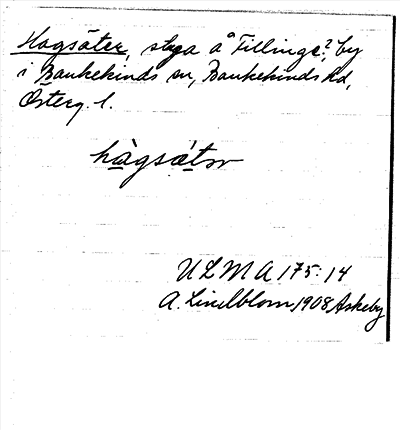 Hagsäter, stuga å Fillinge? by
i Bankekinds sn, Bankekinds hd,
Österg. l.
hàgsátər
ULMA 175:14
A. Lindblom 1908 Askeby